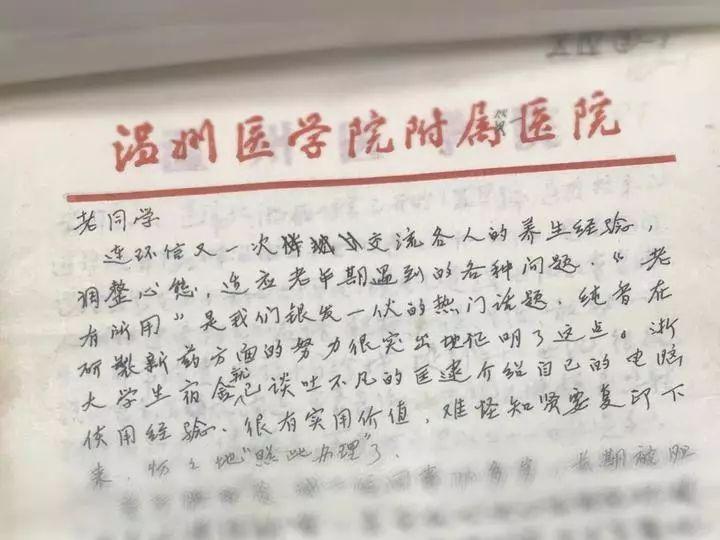 温州医学院附属第一医院
老同学
连环信又一次交流各人的养生经验，
调整心态，适应老年期遇到的各种问题．“老
有所用”是我们银发一伙的热门话题．纯青在
研制新药方面的努力很突出地证明了这点。浙
大学生宿舍就已谈吐不凡的匡建介绍自己的电脑
使用经验．很有实用价值，难怪知贤要复印下
来，地“照此办理”了．
长期被胆